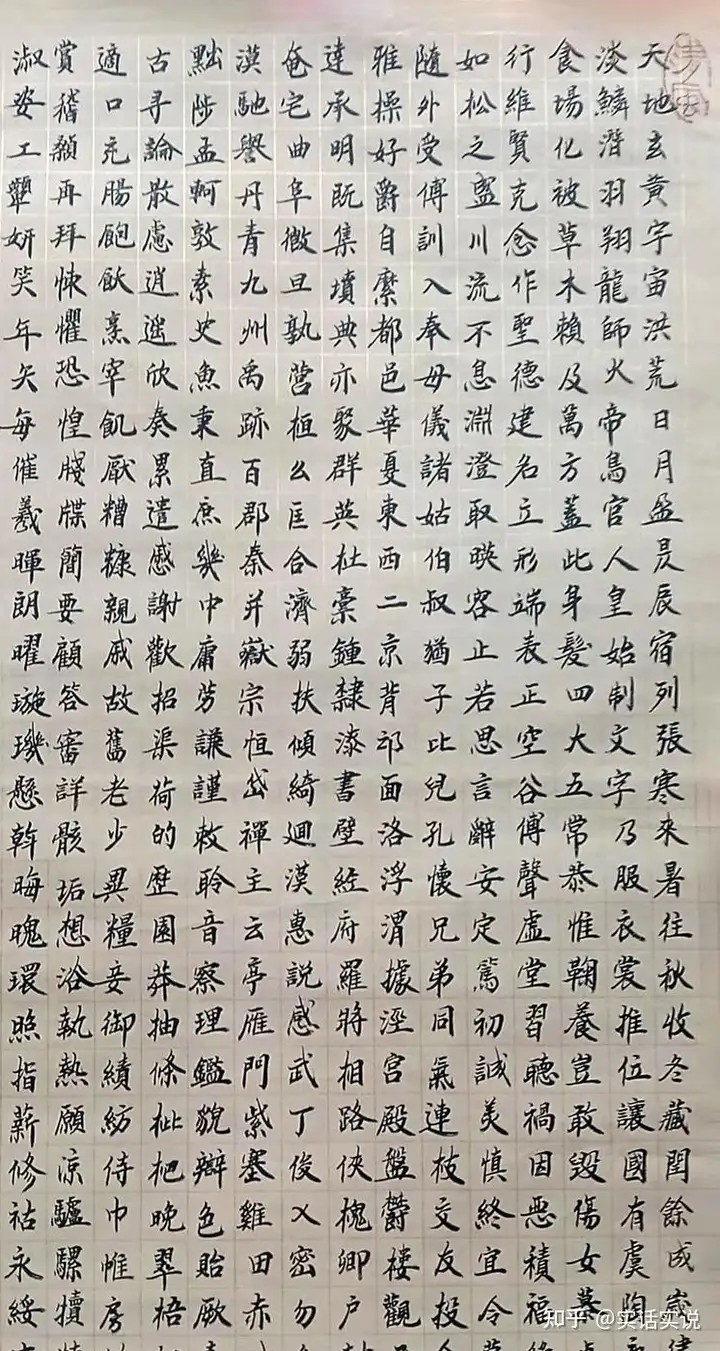 天地玄黃宇宙洪荒日月盈昃辰宿列張寒來暑往秋收冬藏閏餘成歲
淡鱗潛羽翔龍師火帝鳥官人皇始制文字乃服衣裳推位讓國有虞陶
食場化被草木賴及萬方蓋此身髮四大五常恭惟鞠養豈敢毀傷女慕
行維賢克念作聖德建名立形端表正空谷傅聲虛堂習聽禍因惡積福
如松之盛川流不息淵澄取暎容止若思言辭安定篤初誠美慎終宜令
隨外受傅訓入奉母儀諸姑伯叔猶子比兒孔懷兄弟同氣連枝交友投
雅操好爵自縻都邑華夏東西二京背邙面洛浮渭據涇宮殿盤鬱樓觀
達承明既集墳典亦聚群英杜稾鍾隸漆書壁經府羅將相路俠槐卿戶
奄宅曲阜微旦孰營桓么匡合濟弱扶傾綺迴漢惠說感武丁俊乂密勿
漠馳譽丹青九州禹跡百郡秦并嶽宗恒岱禪主云亭雁門紫塞雞田赤
黜陟孟軻敦素史魚秉直庶幾中庸勞謙謹敕聆音察理鑑貌辯色貽厥
古尋論散慮逍遙欣奏累遣慼謝歡招渠荷的歷園莽抽條枇杷晚翠梧
適口充腸飽飫烹宰飢厭糟糠親戚故舊老少異糧妾御績紡侍巾帷房
賞稽顙再拜悚懼恐惶牋牒簡要顧答審詳骸垢想浴執熱願涼驢騾犢
淑姿工顰妍笑年矢每催羲暉朗曜璇璣懸斡晦魄環照指薪修祜永綏
知乎 @实话实说